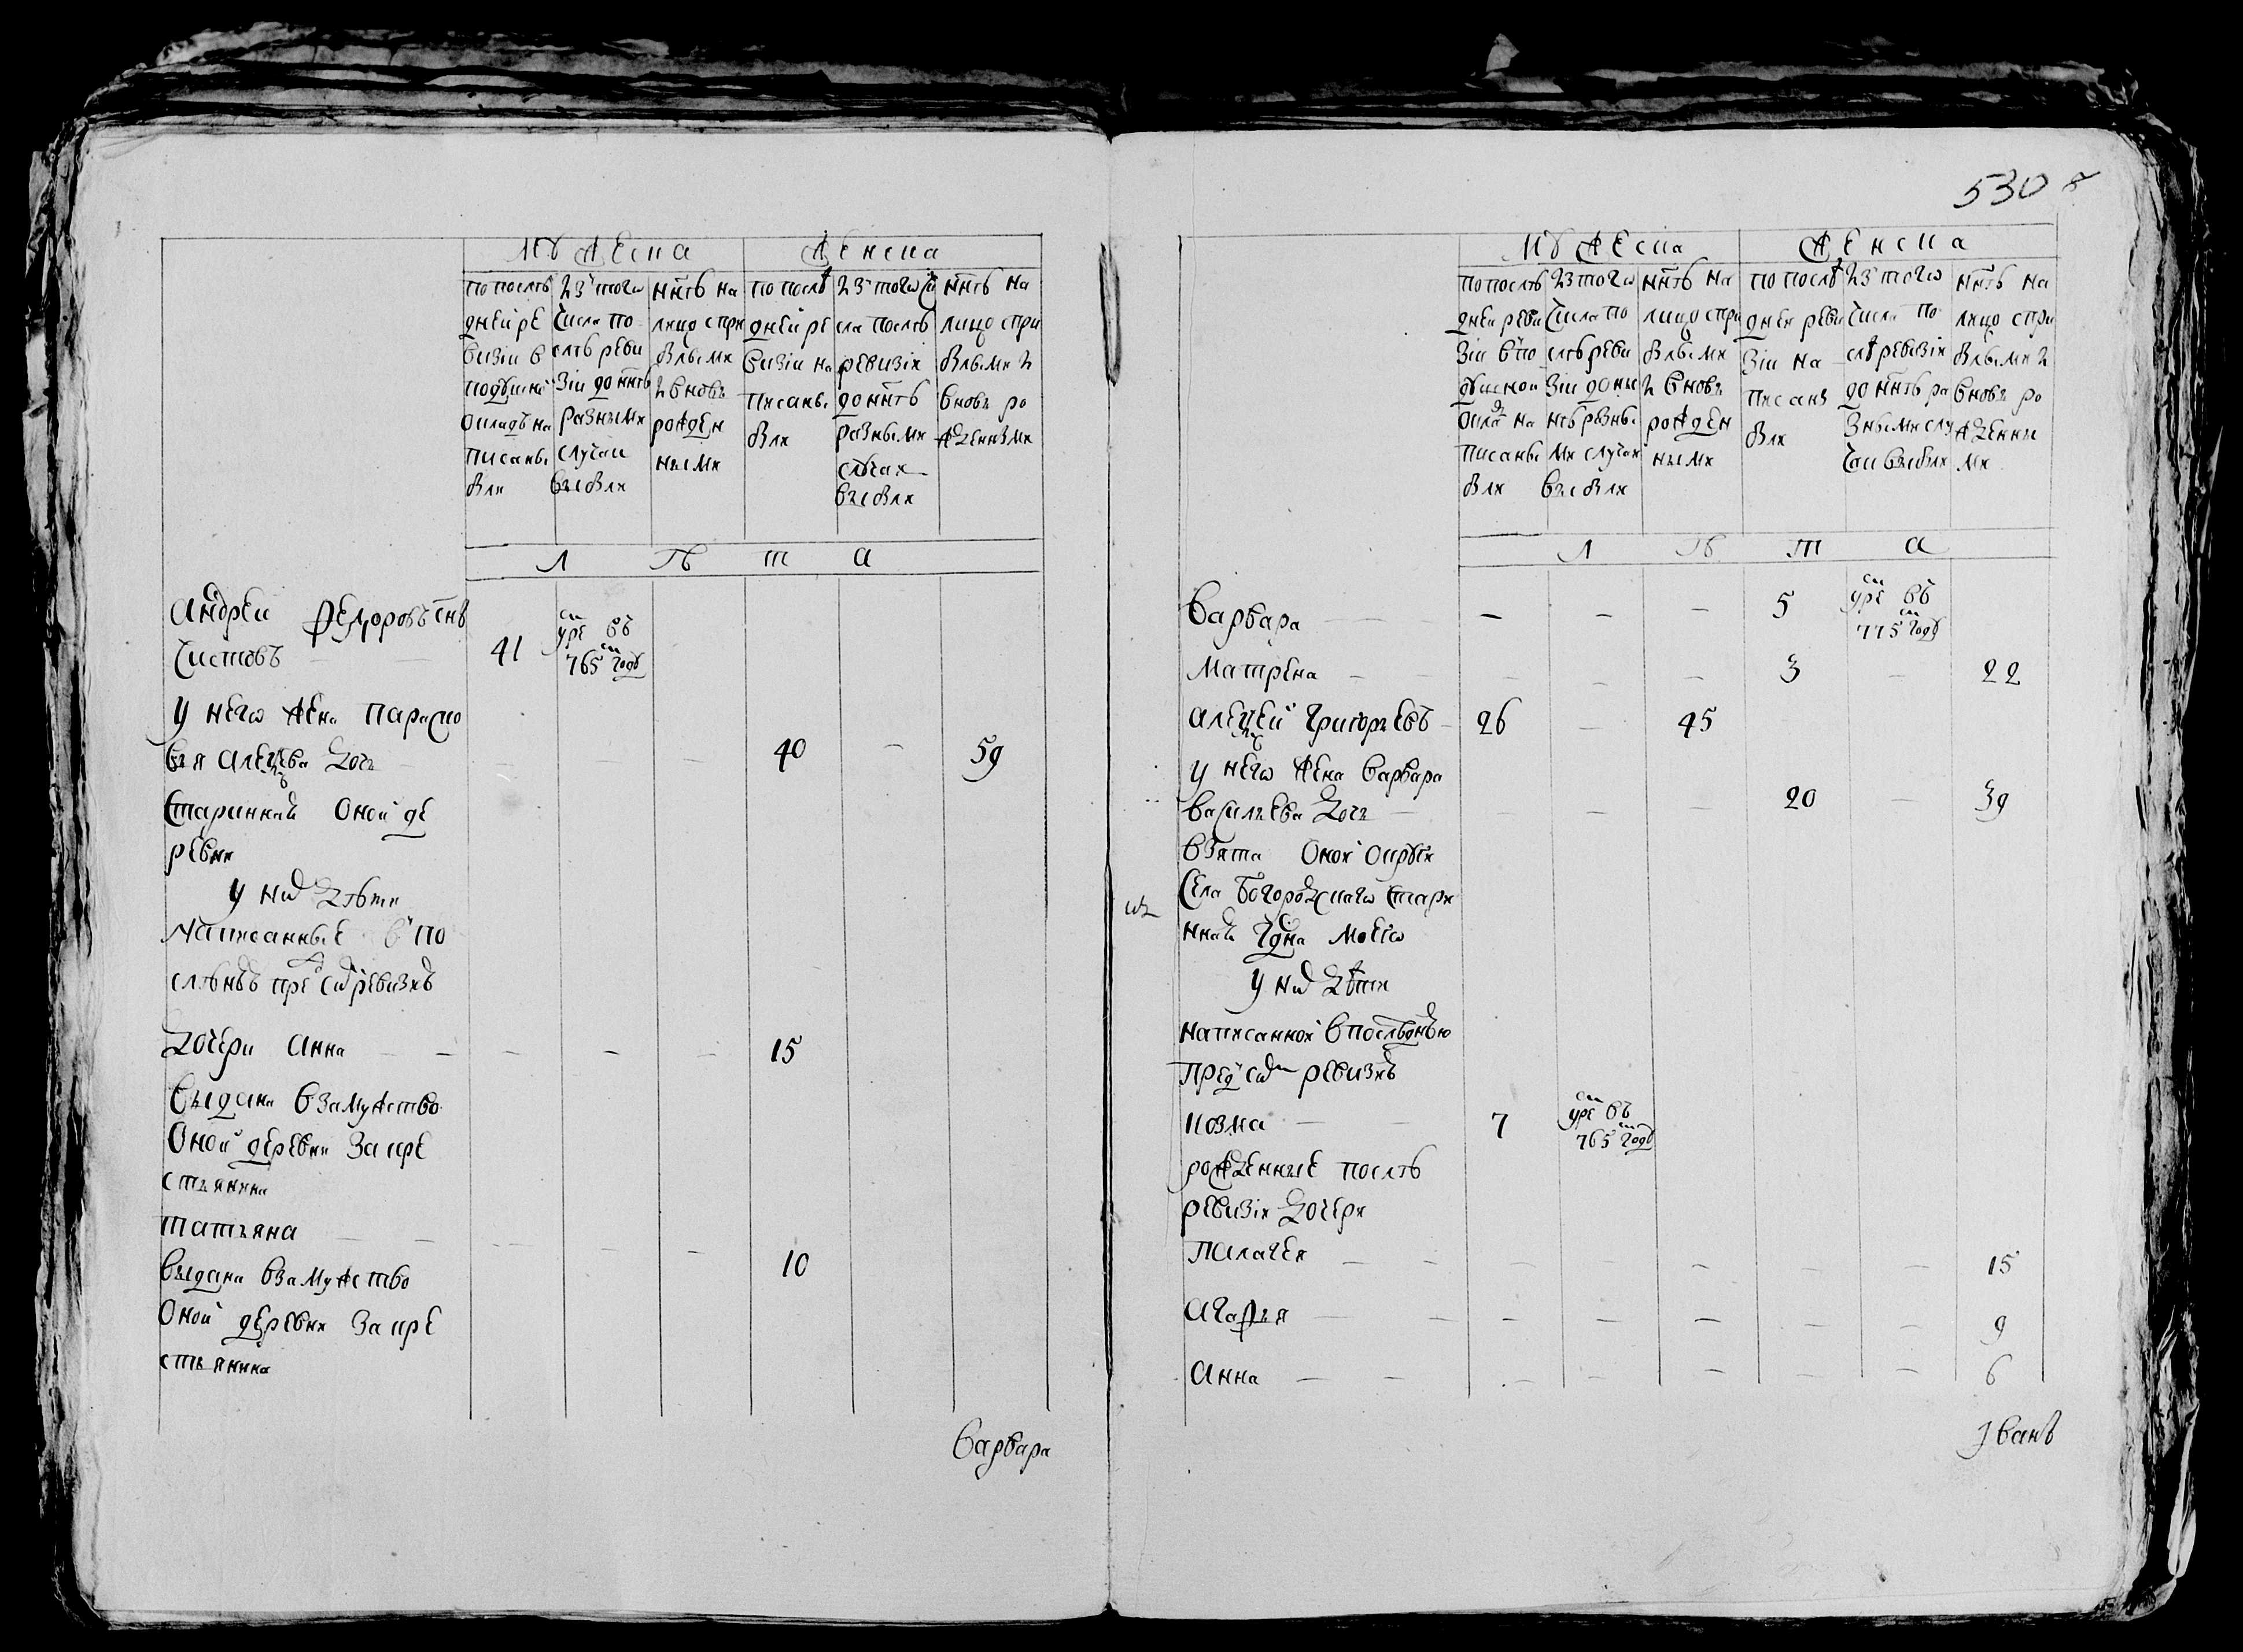 мужеска
женска
по послѣ
дней ре
визіи в
подушно
окладъ на
писаны
были
из того
числа по
слѣ реви
зіи до ннѣ
разными
случаи
выбыли
ннѣ на
лицо с при
былыми
и вновь
рожден
ными
по послѣ
дней ре
визіи на
писаны
были
из того чи
сла послѣ
ревизіи
до ннѣ
разными
случаи
выбыли
ннѣ на
лицо с при
былыми и
вновь ро
жденными
л ѣ т а
Андрей Федоровъ снъ
Чистовъ
41
умре въ
765 году
у него жена Параско
вья Алеѯѣева дочь
40
59
старинная оной де
ревни
у нихъ дѣти
написанные в по
слѣднѣй пред сих ревизіи
дочери Анна
15
выдана в замужство
оной деревни за кре
стьянина
Татьяна
10
выдана в замужство
оной деревни за кре
стьянина
Варвара
530
мужеска
женска
по послѣ
дней реви
зіи в по
душной
оклад на
писаны
были
из того
числа по
слѣ реви
зіи до ны
нѣ разны
ми случаи
выбыли
ннѣ на
лицо с при
былыми
и вновь
рожден
ными
по послѣ
дней реви
зіи на
писаны
были
из того
числа по
слѣ ревизіи
до ннѣ ра
зными слу
чаи выбыли
ннѣ на
лицо с при
былыми и
вновь ро
жденны
ми
л ѣ т а
Варвара
5
умре въ
775 году
Матрена
3
22
Алеѯѣй Григорьевъ
26
45
у него жена Варвара
Васильева дочь
20
39
взята оной округи
села Богородскаго стари
нная гдна моего
у нихъ дѣти
написанной в послѣднѣю
пред сим ревизію
Козма
7
умре въ
765 году
рожденные послѣ
ревизіи дочери
Палагея
15
Агафья
9
Анна
6
Iванъ